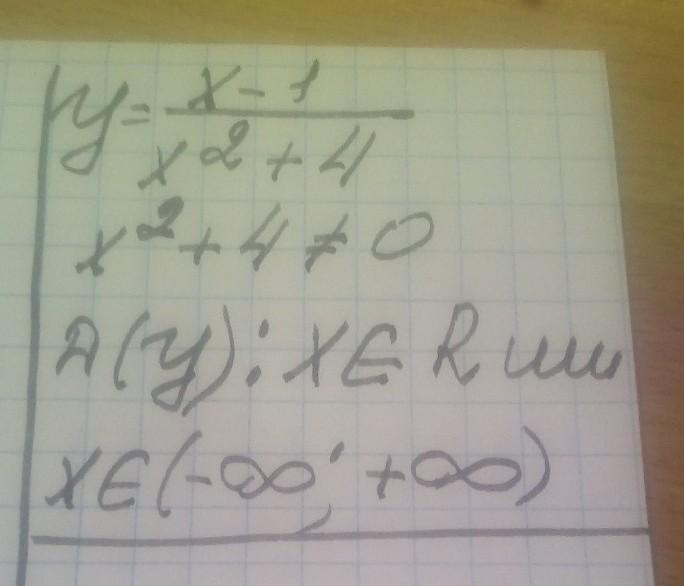 y = x - 1 / x² + 4
x² + 4 ≠ 0
D(y): x ∈ R или
x ∈ (-∞; +∞)